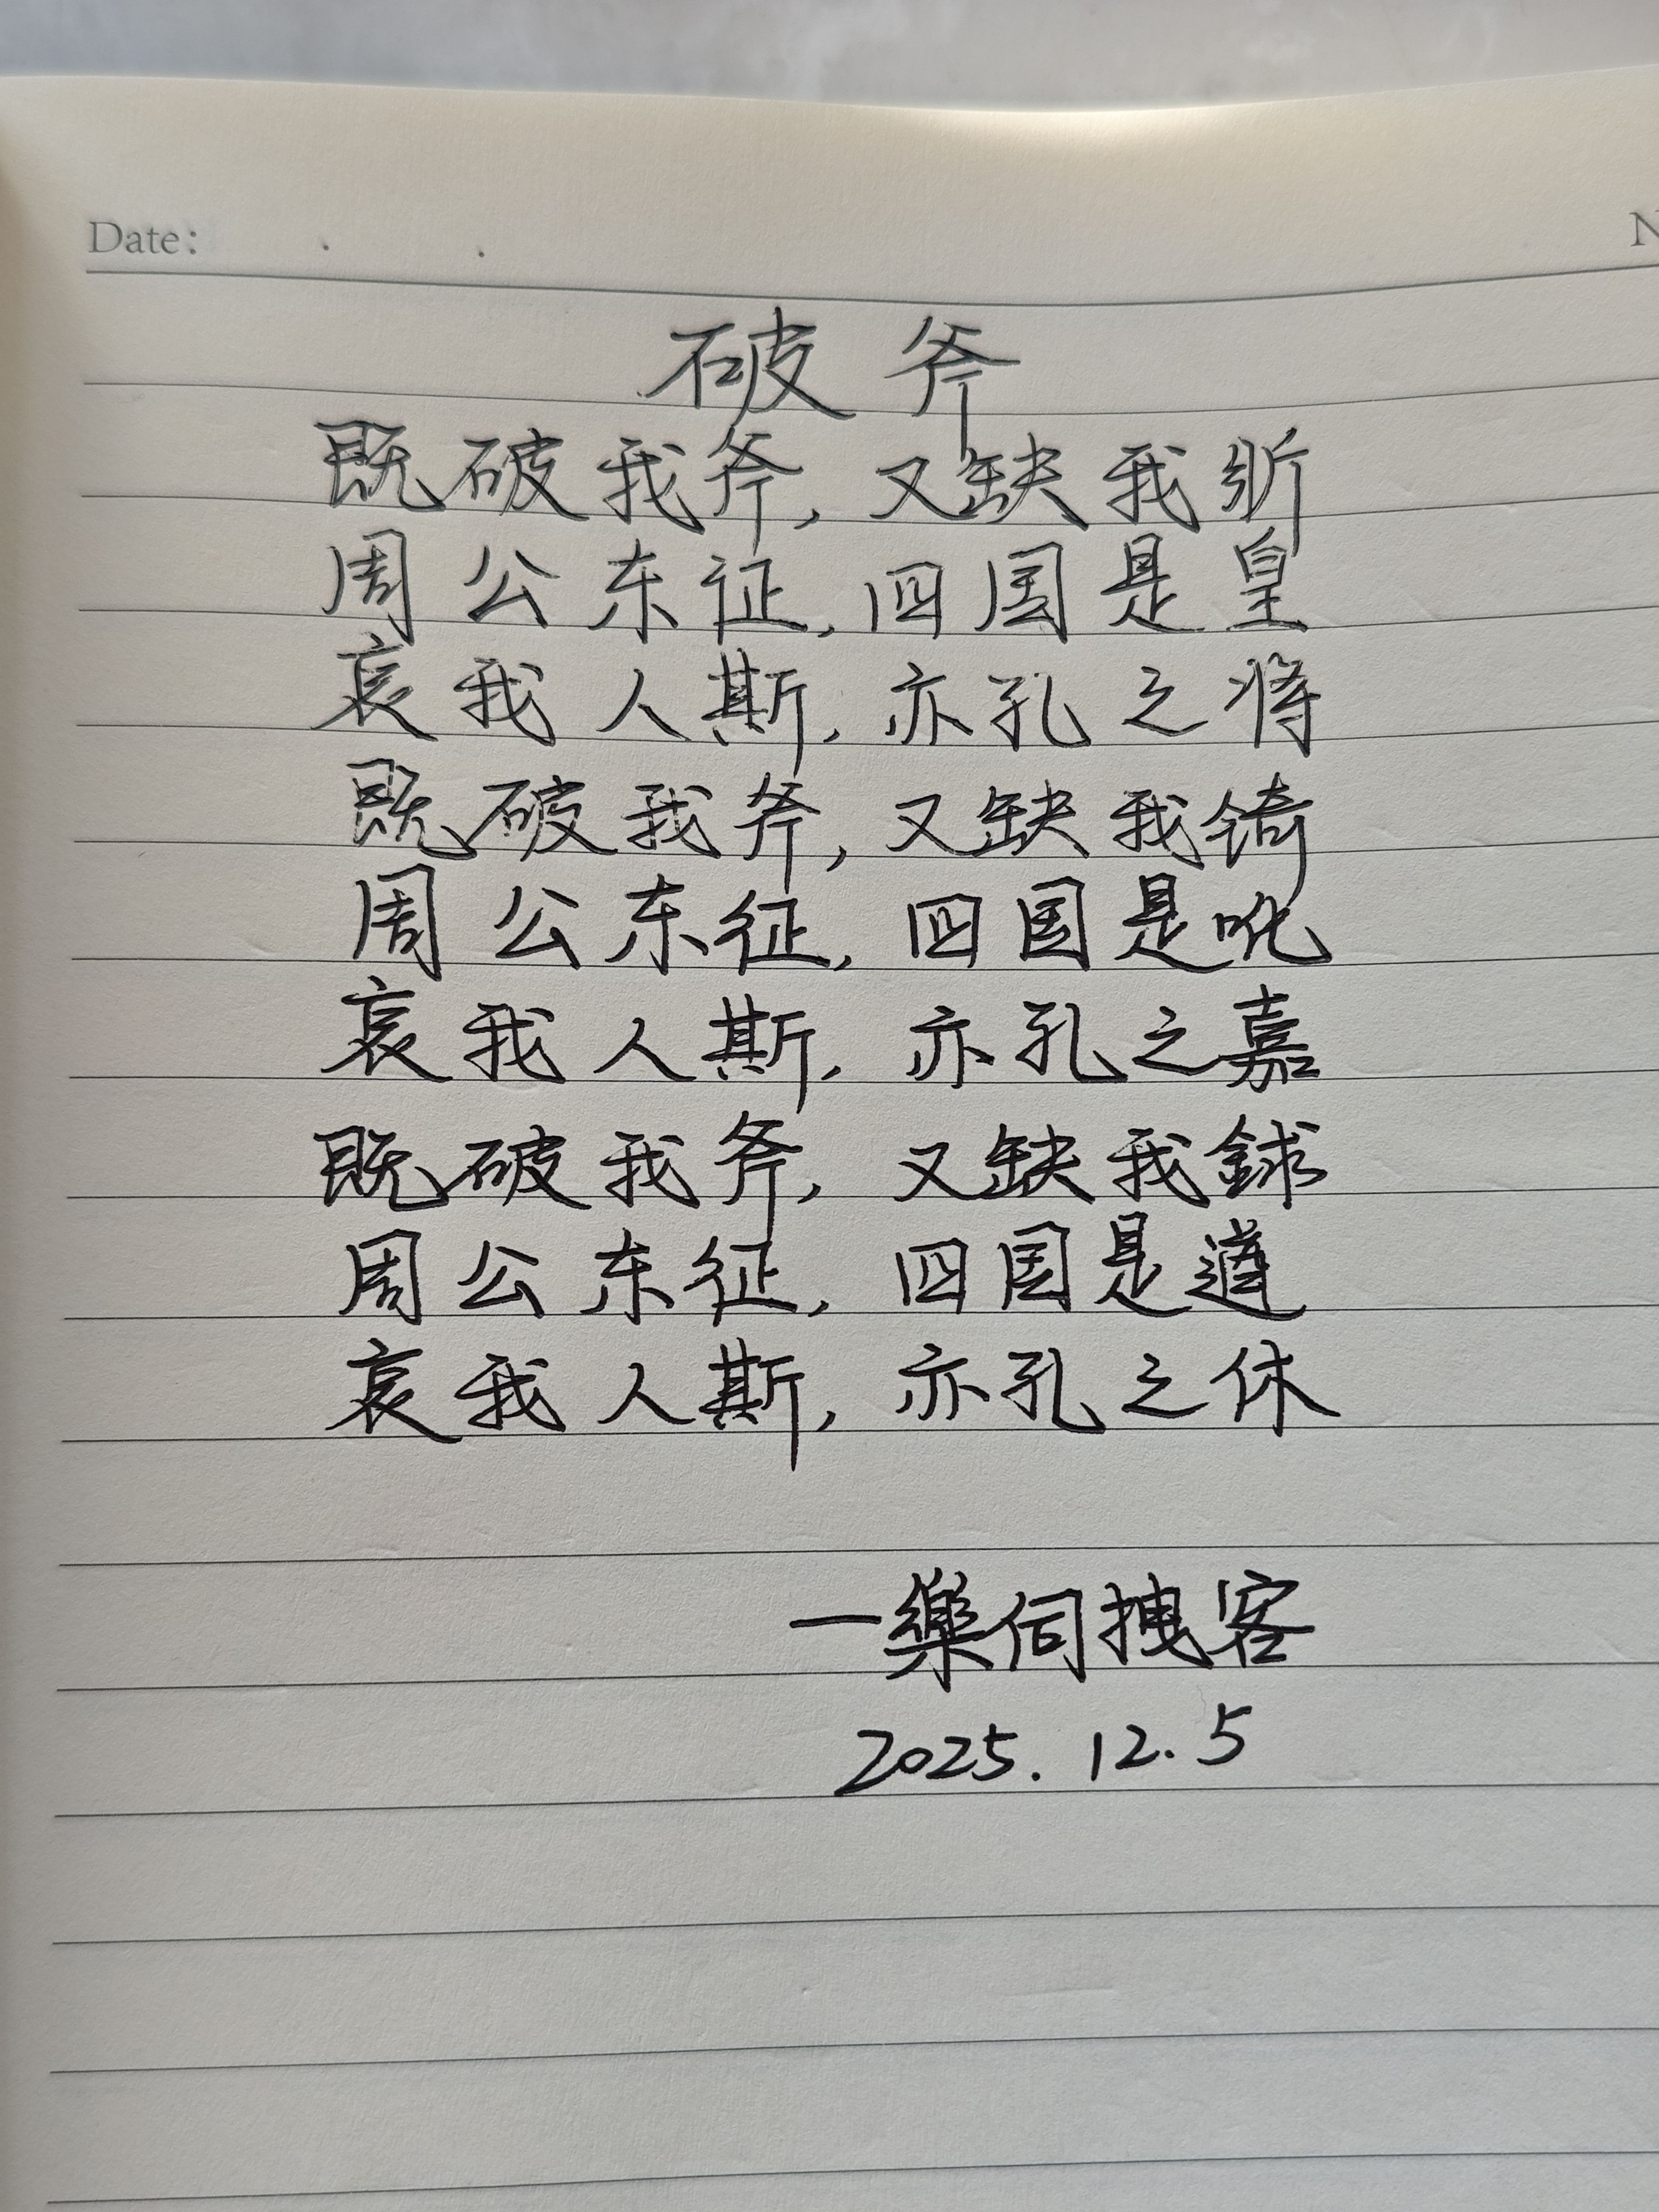 Date:
破斧
既破我斧,又缺我斨
周公东征,四国是皇
哀我人斯,亦孔之将
既破我斧,又缺我锜
周公东征,四国是吪
哀我人斯,亦孔之嘉
既破我斧,又缺我銶
周公东征,四国是遒
哀我人斯,亦孔之休
一樂伺拽客
2025.12.5